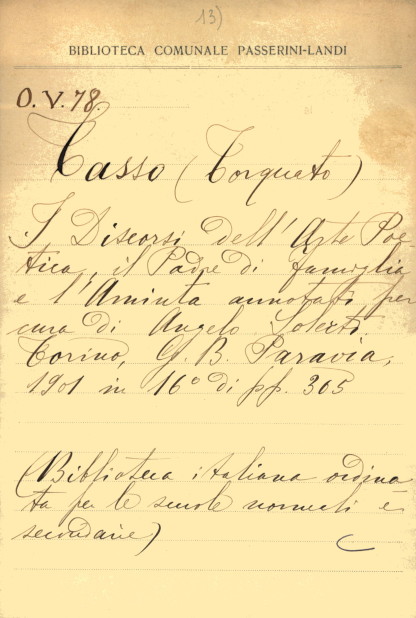 13)
BIBLIOTECA COMUNALE PASSERINI-LANDI
O.V.78.
Tasso (Torquato)
I Discorsi dell'Arte Poe-
tica, il Padre di famiglia
e l'Aminta annotati per
cura di Angelo Solerti.
Torino, G. B. Paravia,
1901 in 16° di pp. 365
(Biblioteca italiana ordina
ta per le scuole normali e
secondarie)